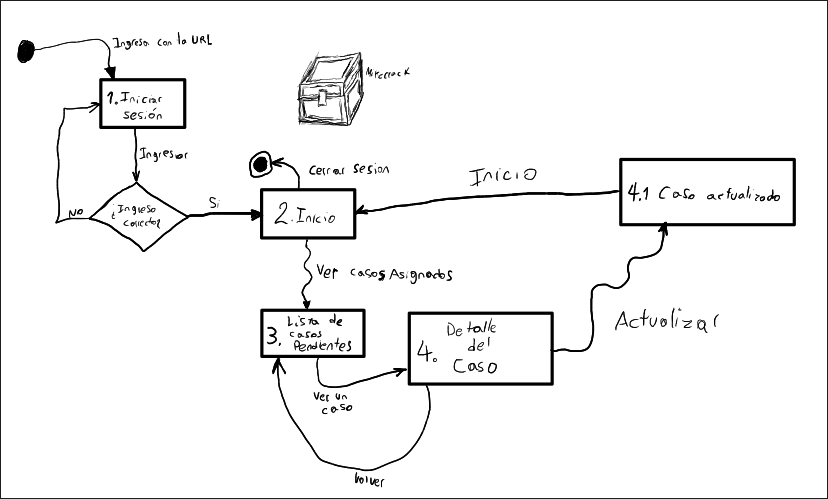 Ingresa con la URL
1. Iniciar
sesión
Ingresar
¿Ingreso
NO
Si
Cerrar sesion
2. Inicio
Inicio
4.1 Caso actualizado
Ver casos Asignados
3. Lista de
casos
Pendientes
Ver un
caso
4. Detalle
del
Caso
Actualizar
Volver